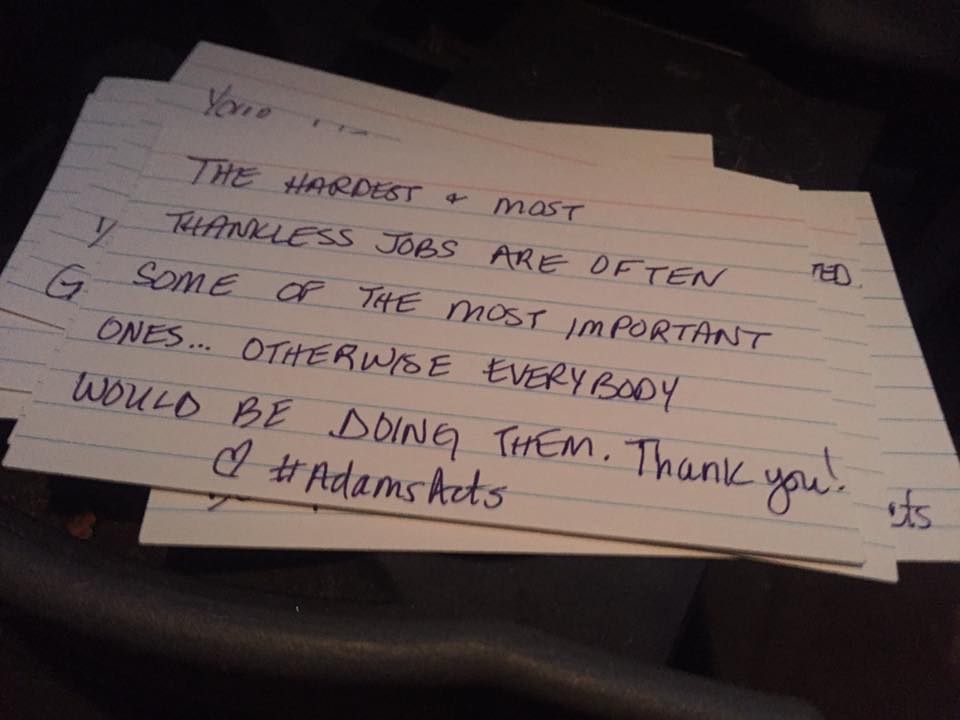 THE HARDEST & MOST
THANKLESS JOBS ARE OFTEN
SOME OF THE MOST IMPORTANT
ONES... OTHERWISE EVERYBODY
WOULD BE DOING THEM. Thank you!
♡ #AdamsActs
TED.
G